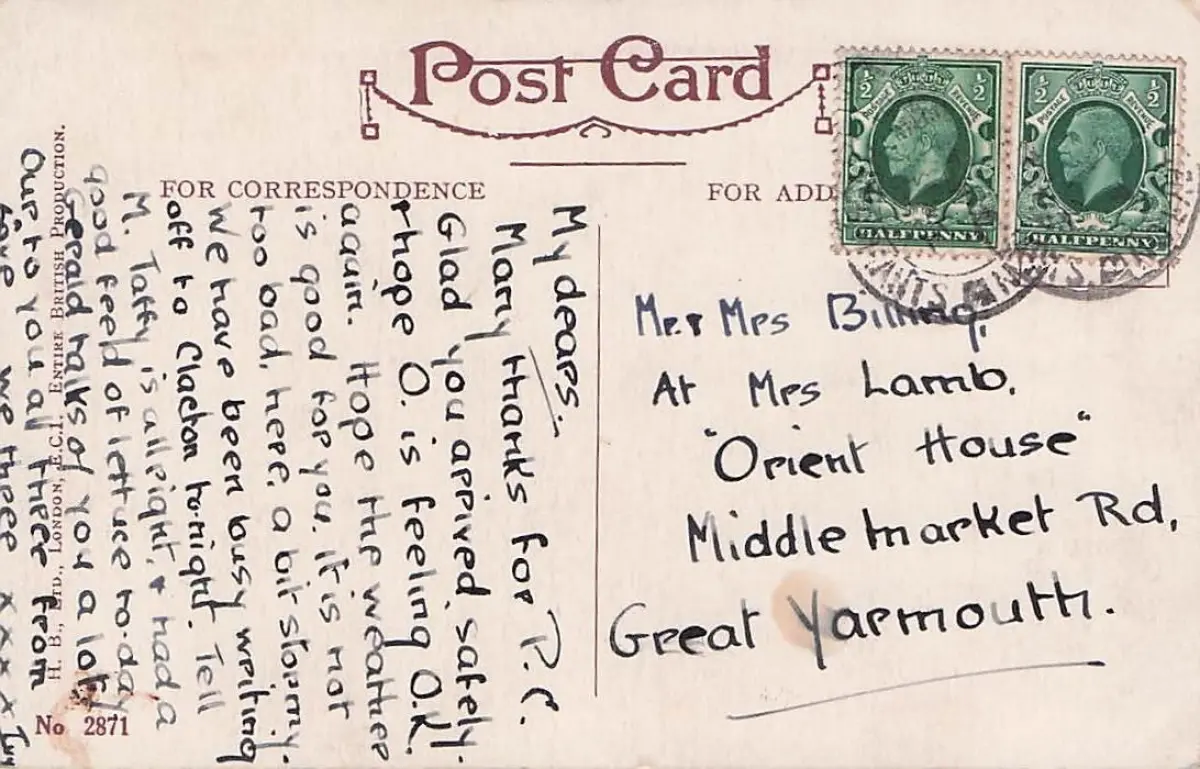 Post Card
FOR CORRESPONDENCE
FOR ADD
½ ½
POSTAGE REVENUE
HALFPENNY
½ ½
POSTAGE REVENUE
HALFPENNY
My dears.
Many thanks for P.C.
Glad you arrived safely.
+ hope O. is feeling O.K.
again. Hope the weather
is good for you. it is not
too bad, here, a bit stormy.
We have been busy writing
off to Clacton to-night. Tell
M. Taffy is allright, + had a
good feed of lettuce to-day
Gerald talks of you a lot
Our to you all three from
love we three x x x x
Mr + Mrs Billing,
At Mrs Lamb,
"Orient House"
Middlemarket Rd,
Great Yarmouth.
H. B., LTD., LONDON, E.C.1. ENTIRE BRITISH PRODUCTION.
No 2871